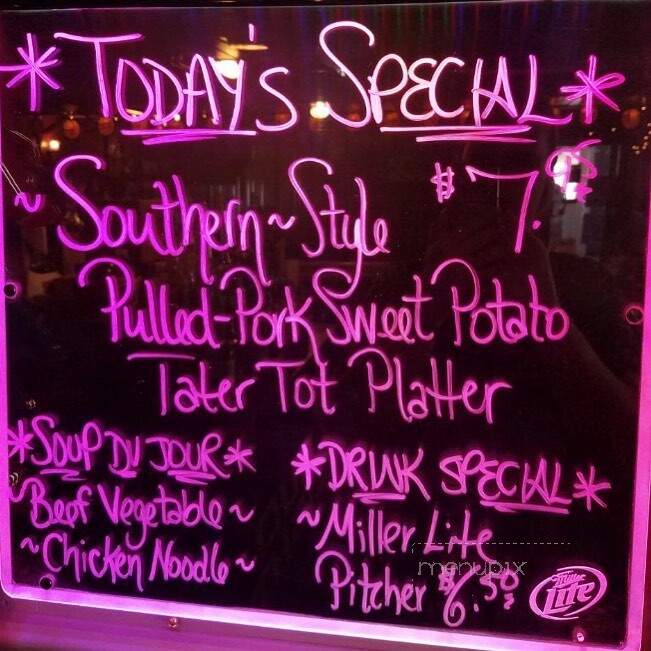 * TODAY'S SPECIAL *
~ Southern~Style $7.
Pulled-Pork Sweet Potato
Tater Tot Platter
*SOUP DU JOUR*
Beef Vegetable ~
~Chicken Noodle~
*DRINK SPECIAL*
~Miller Lite
Pitcher $6.50
menupix
Miller Lite